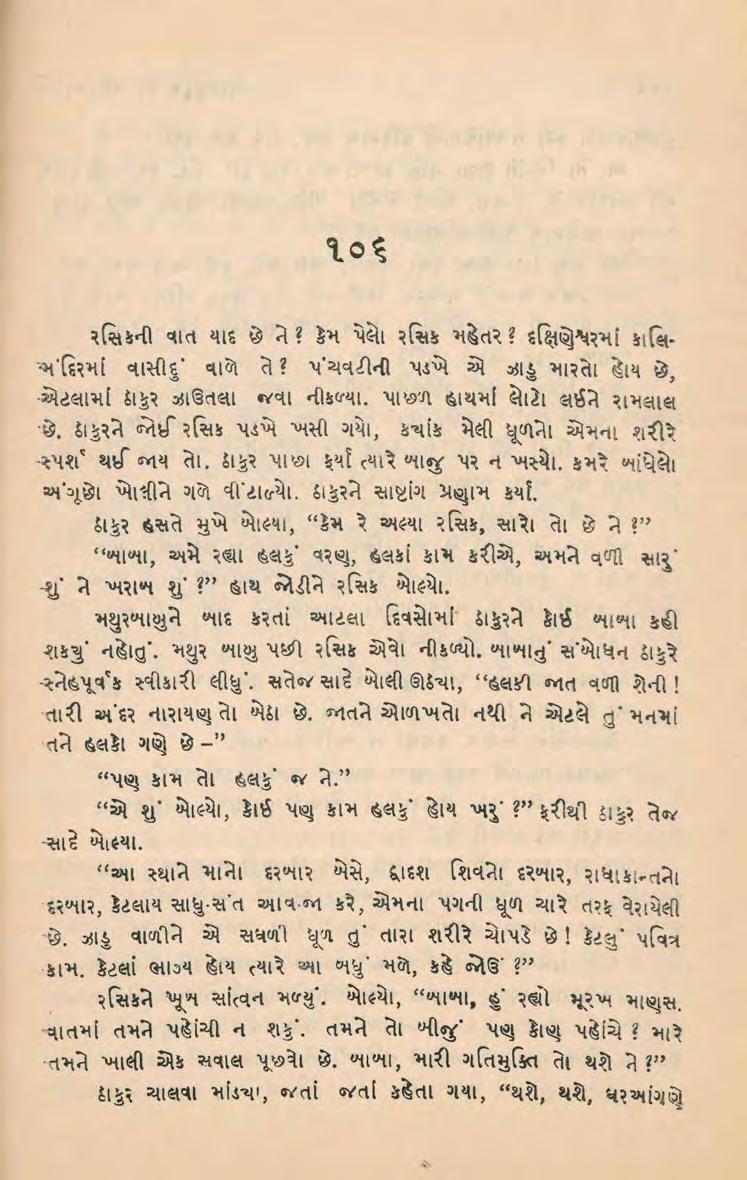 ૧૦૬
રસિકની વાત યાદ છે ને? કેમ પેલો રસિક મહેતર? દક્ષિણેશ્વરમાં કાલિ-
મંદિરમાં વાસીદું વાળે તે? પંચવટીની પડખે એ ઝાડુ મારતો હોય છે,
એટલામાં ઠાકુર ઝાઉતલા જવા નીકળ્યા. પાછળ હાથમાં લોટો લઈને રામલાલ
છે. ઠાકુરને જોઈ રસિક પડખે ખસી ગયો, કયાંક મેલી ધૂળનો એમના શરીરે
સ્પર્શ થઈ જાય તો. ઠાકુર પાછા ફર્યા ત્યારે બાજુ પર ન ખસ્યો. કમરે બાંધેલો
અંગૂછો ખોલીને ગળે વીંટાળ્યો. ઠાકુરને સાષ્ટાંગ પ્રણામ કર્યાં.
ઠાકુર હસતે મુખે બોલ્યા, “કેમ રે અલ્યા રસિક, સારો તો છે ને ?”
“બાબા, અમે રહ્યા હલકું વરણ, હલકાં કામ કરીએ, અમને વળી સારું
શું ને ખરાબ શું ?” હાથ જોડીને રસિક બોલ્યો.
મથુરબાબુને બાદ કરતાં આટલા દિવસોમાં ઠાકુરને કોઈ બાબા કહી
શકયું નહોતું. મથુર બાબુ પછી રસિક એવો નીકળ્યો. બાબાનું સંબોધન ઠાકુરે
સ્નેહપૂર્વક સ્વીકારી લીધું. સતેજ સાદે બોલી ઊઠયા, “હલકી જાત વળી શેની !
તારી અંદર નારાયણ તો બેઠા છે. જાતને ઓળખતો નથી ને એટલે તું મનમાં
તને હલકો ગણે છે –”
“પણ કામ તો હલકું જ ને.”
“એ શું બોલ્યો, કોઈ પણ કામ હલકું હોય ખરું ?” ફરીથી ઠાકુર તેજ
સાદે બોલ્યા.
“આ સ્થાને માનો દરબાર બેસે, દ્વાદશ શિવનો દરબાર, રાધાકાન્તનો
દરબાર, કેટલાય સાધુ-સંત આવ-જા કરે, એમના પગની ધૂળ ચારે તરફ વેરાયેલી
છે. ઝાડુ વાળીને એ સઘળી ધૂળ તું તારા શરીરે ચોપડે છે ! કેટલું પવિત્ર
કામ. કેટલાં ભાગ્ય હોય ત્યારે આ બધું મળે, કહે જોઉં ?”
રસિકને ખૂબ સાંત્વન મળ્યું. બોલ્યો, “બાબા, હું રહ્યો મૂરખ માણસ.
વાતમાં તમને પહોંચી ન શકું. તમને તો બીજું પણ કોણ પહોંચે ? મારે
તમને ખાલી એક સવાલ પૂછવો છે. બાબા, મારી ગતિમુક્તિ તો થશે ને ?”
ઠાકુર ચાલવા માંડયા, જતાં જતાં કહેતા ગયા, “થશે, થશે, ઘરઆંગણે